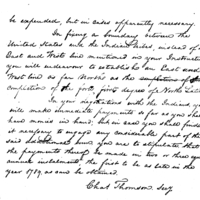 be expended, but in cases apparently necessary.
In fixing a boundary between the
United States and the Indian tribes, instead of a
East and West line mentioned in your Instructi
you will endeavour to establish an East and
West line as far North as the completion of the
completion of the forty first degree of North Lati
In your negotiations with the Indians, you
will make immediate payments so far as you shall
have monies in hand; but in case you should find
it necessary to engage any considerable part of the
said you are to stipulate that
the payments thereof be made in two or three equal
annual instalments, the first to be as late in the
year 1789 as can be obtained.
Chas Thomson Secy